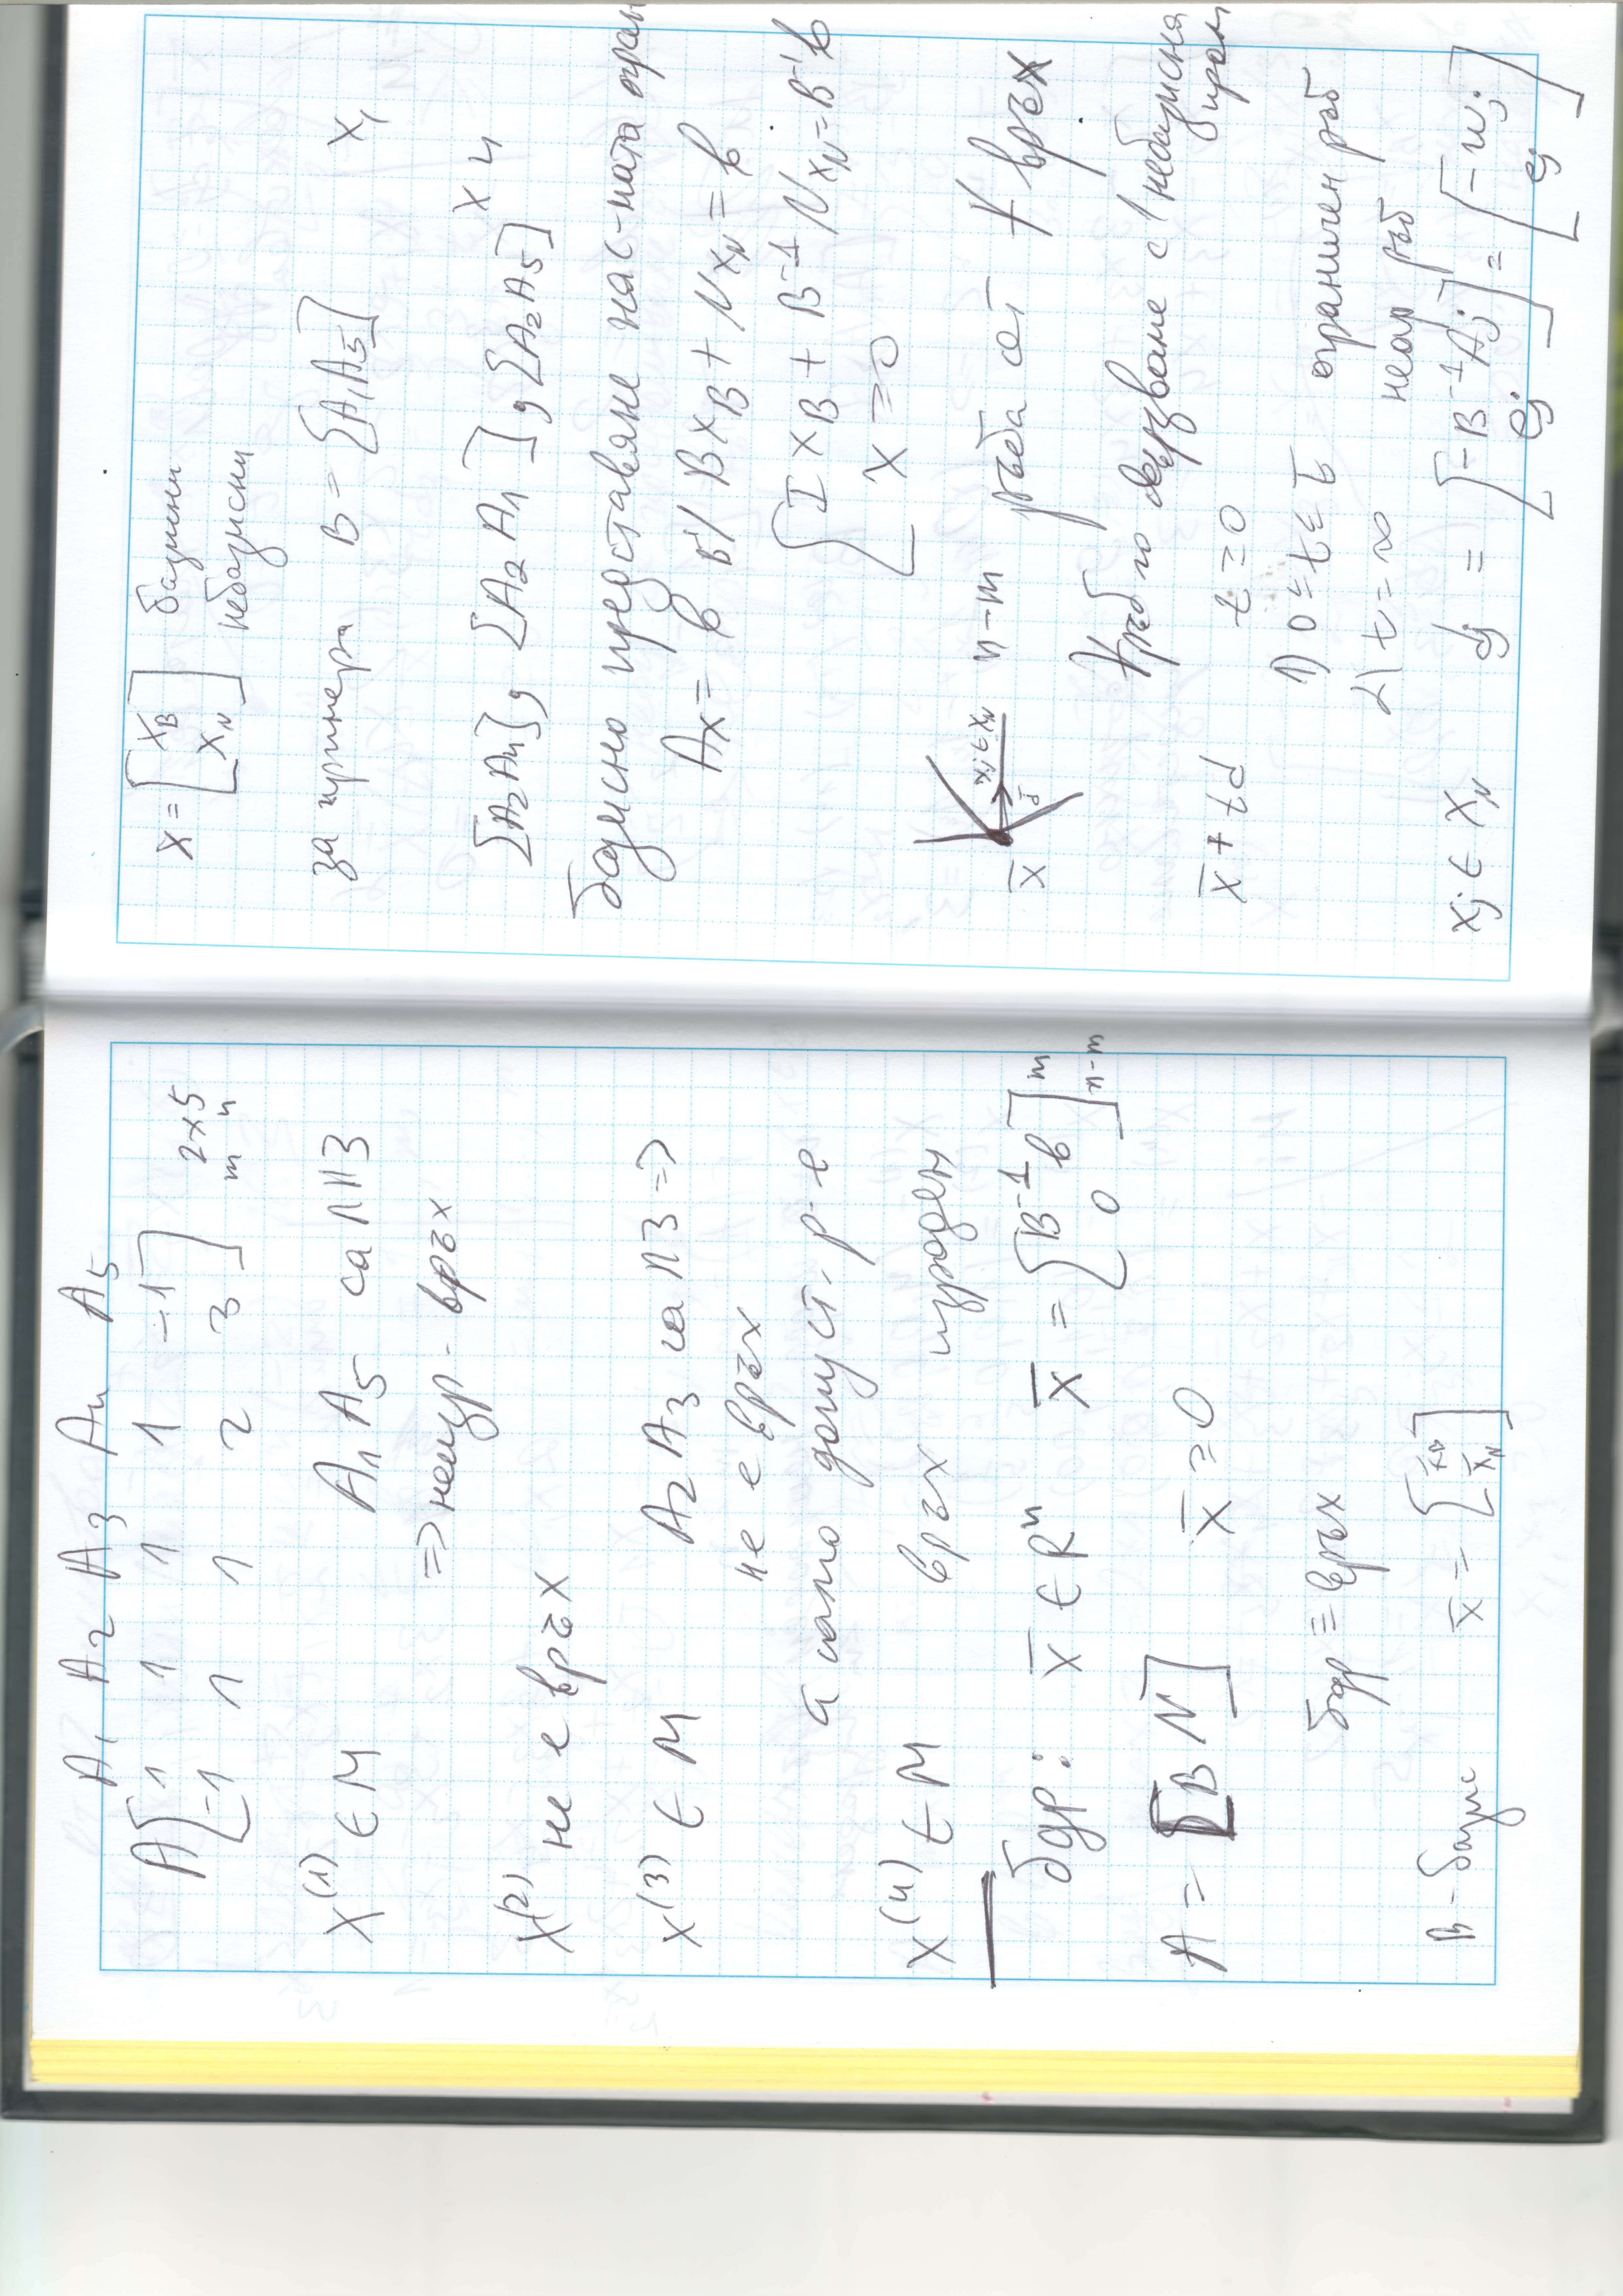 A1 A2 A3 A4 A5
A [ 1 1 1 1 -1
-1 1 1 2 3 ] 2x5
m n
x^(1) ∈ M A1 A5 са ЛНЗ
=> неизр. връх
x^(2) не е връх
x^(3) ∈ M A2 A3 са ЛЗ =>
не е връх
а само допуст. р-е
x^(4) ∈ M връх изроден
бдр: x̄ ∈ R^n x̄ = [ B^-1 b
0 ] m
n-m
A = [B N] x̄ ≥ 0
бдр ≡ връх
B - базис x̄ = [ x̄B
x̄N ]
x = [ xB
xN ] базисни
небазисни
за примера B = [A1 A5] x1
[A2 A4], [A2 A1], [A2 A5] x4
базисно представяне на с-мата огран
Ax = b B^-1/ BxB + NxN = b
[ I xB + B^-1 N xN = B^-1 b
x ≥ 0
x̄ d xj ∈ xN n-m ръба от ∀ връх
∀ ръб по свързване с 1 небазисна
пром
x̄ + td t ≥ 0
1) 0 ≤ t ≤ t̄ ограничен ръб
2) t = ∞ неогр ръб
xj ∈ xN dj = [ -B^-1 Aj
ej ] = [ -wj
ej ]